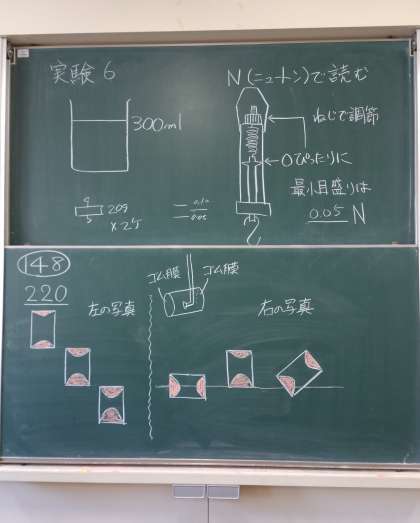 実験6
N(ニュートン)で読む
300ml
ねじで調節
0ぴったりに
最小目盛りは
0.05 N
20g
×2ケ
148
220
左の写真
ゴム膜 ゴム膜
右の写真